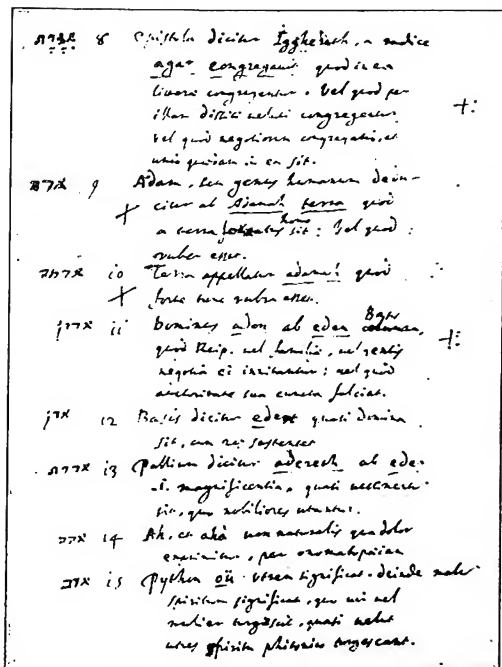 אגרת 8 Epistola dicitur Iggheresh, a radice
agar congregauit quod in ea
literae congregentur. Vel quod per
illam dissiti ueluti congregentur
vel quod negotiorum congregatio, et
unio quaedam in ea sit. +:
אדם 9 Adam, seu genus humanum deduc-
citur ab Adamah terra quod
a terra homo sit: Vel quod
ruber esset.
אדמה 10 Terra appellatur adamah quod
forte tunc rubra esset.
אדון 11 Dominus adon ab eden Basis
quod Reip. uel familiae, uel gentis
negotia ei innitantur: uel quod
auctoritate sua cuncta fulciat. +:
אדן 12 Basis dicitur eden quasi domina
sit, cum rei sustentet
אדרת 13 Pallium dicitur adereth ab eder
.i. magnificentia, quasi
sit, quo nobiliores utuntur.
אהה 14 Ah, et aha uox naturalis qua dolor
exprimitur, per onomatopoeiam
אוב 15 Python utrem significat. deinde
spiritum significat, quo uir uel
mulier turgescit, quasi uelut
utres spiritu turgescant.